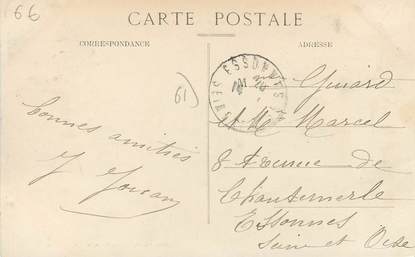 66
CARTE POSTALE
CORRESPONDANCE
ADRESSE
61
Bonnes amitiés
ESSONNES
Guiard
et Mr Marcel
8 Avenue de
Chantemerle
Essonnes
Seine et Oise